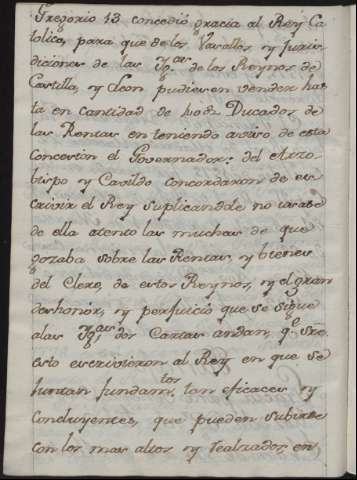 Gregorio 13 concedió gracia al Rey Ca
tolico, para que de los Vasallos y Juris
diciones de las Yg.as de los Reynos de
Castilla, y Leon pudiese vender has
ta en cantidad de Ducados de
las Rentas en teniendo aviso de esta
concesion el Governador: del Arzo-
bispo y Cavildo concordaron de es
crivir el Rey suplicandole no usase
de ella atento las muchas de que
gozaba sobre las Rentas, y bienes
del Clero, de estos Reynos, y el gran
deshonor, y perjuicio que se sigue
a las Yg.as dos Cartas andan, q.e sre
esto escrivieron al Rey en que se
juntan fundam.tos tan eficaces y
concluyentes, que pueden subirse
con los mas altos y realzados, en